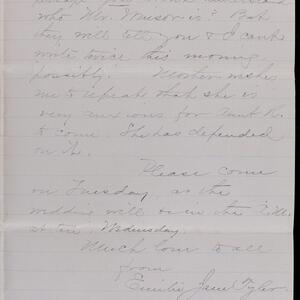 who Mr. Winsor is? But
they will tell you & I can't
write twice this morning
possibly! Mother wishes
me to repeat that she is
very anxious for Aunt R.
to come. She has depended
on it.
Please come
on Tuesday, as the
wedding will be in the
at ten, Wednesday.
Much love to all
from
Emilie Jane Tyler